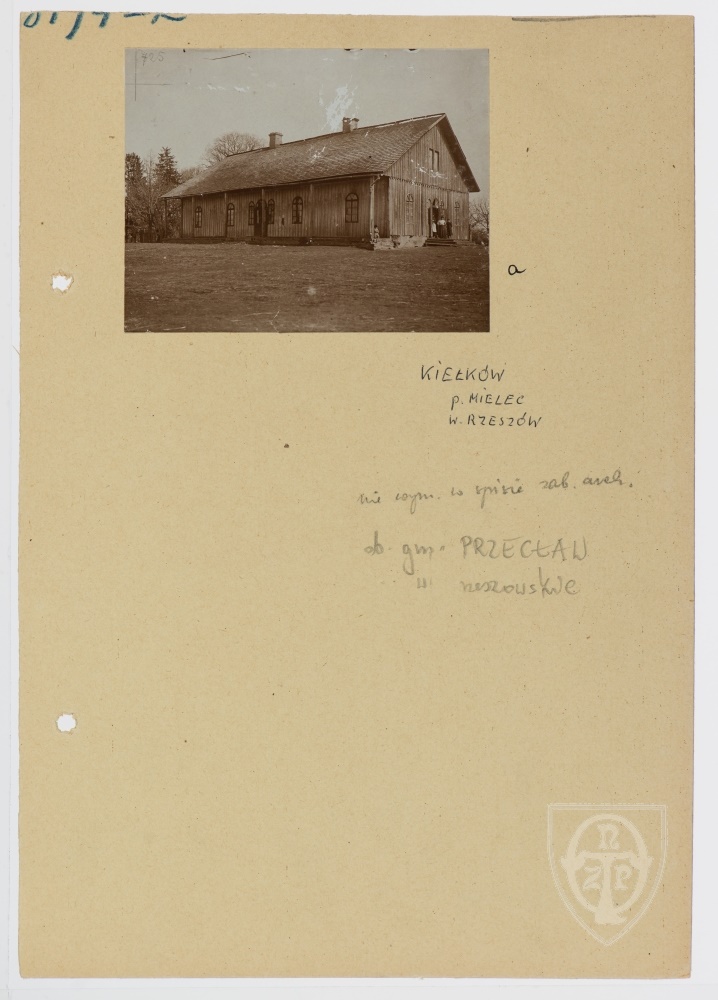 725
a
KIEŁKÓW
p. MIELEC
w. RZESZÓW
nie wym. w spisie zab. arch.
ob. gm. PRZECŁAW
rzeszowskie
TONZP